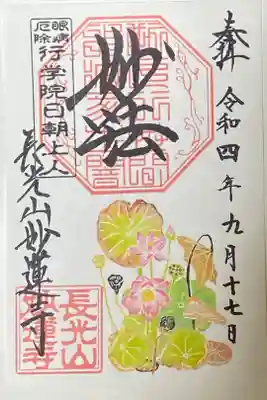 奉拝
令和四年九月十七日
妙法
眼病
厄除
行学院日朝上人
長光山妙蓮寺
長光山
妙蓮寺